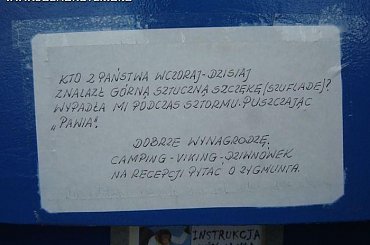 KTO Z PAŃSTWA WCZORAJ-DZISIAJ
ZNALAZŁ GÓRNĄ SZTUCZNĄ SZCZĘKĘ (SZUFLADĘ)?
WYPADŁA MI PODCZAS SZTORMU. PUSZCZAJĄC
„PAWIA”.
DOBRZE WYNAGRODZĘ.
CAMPING-VIKING-DZIWNÓWEK
NA RECEPCJI PYTAĆ O ZYGMUNTA.
INSTRUKCJA